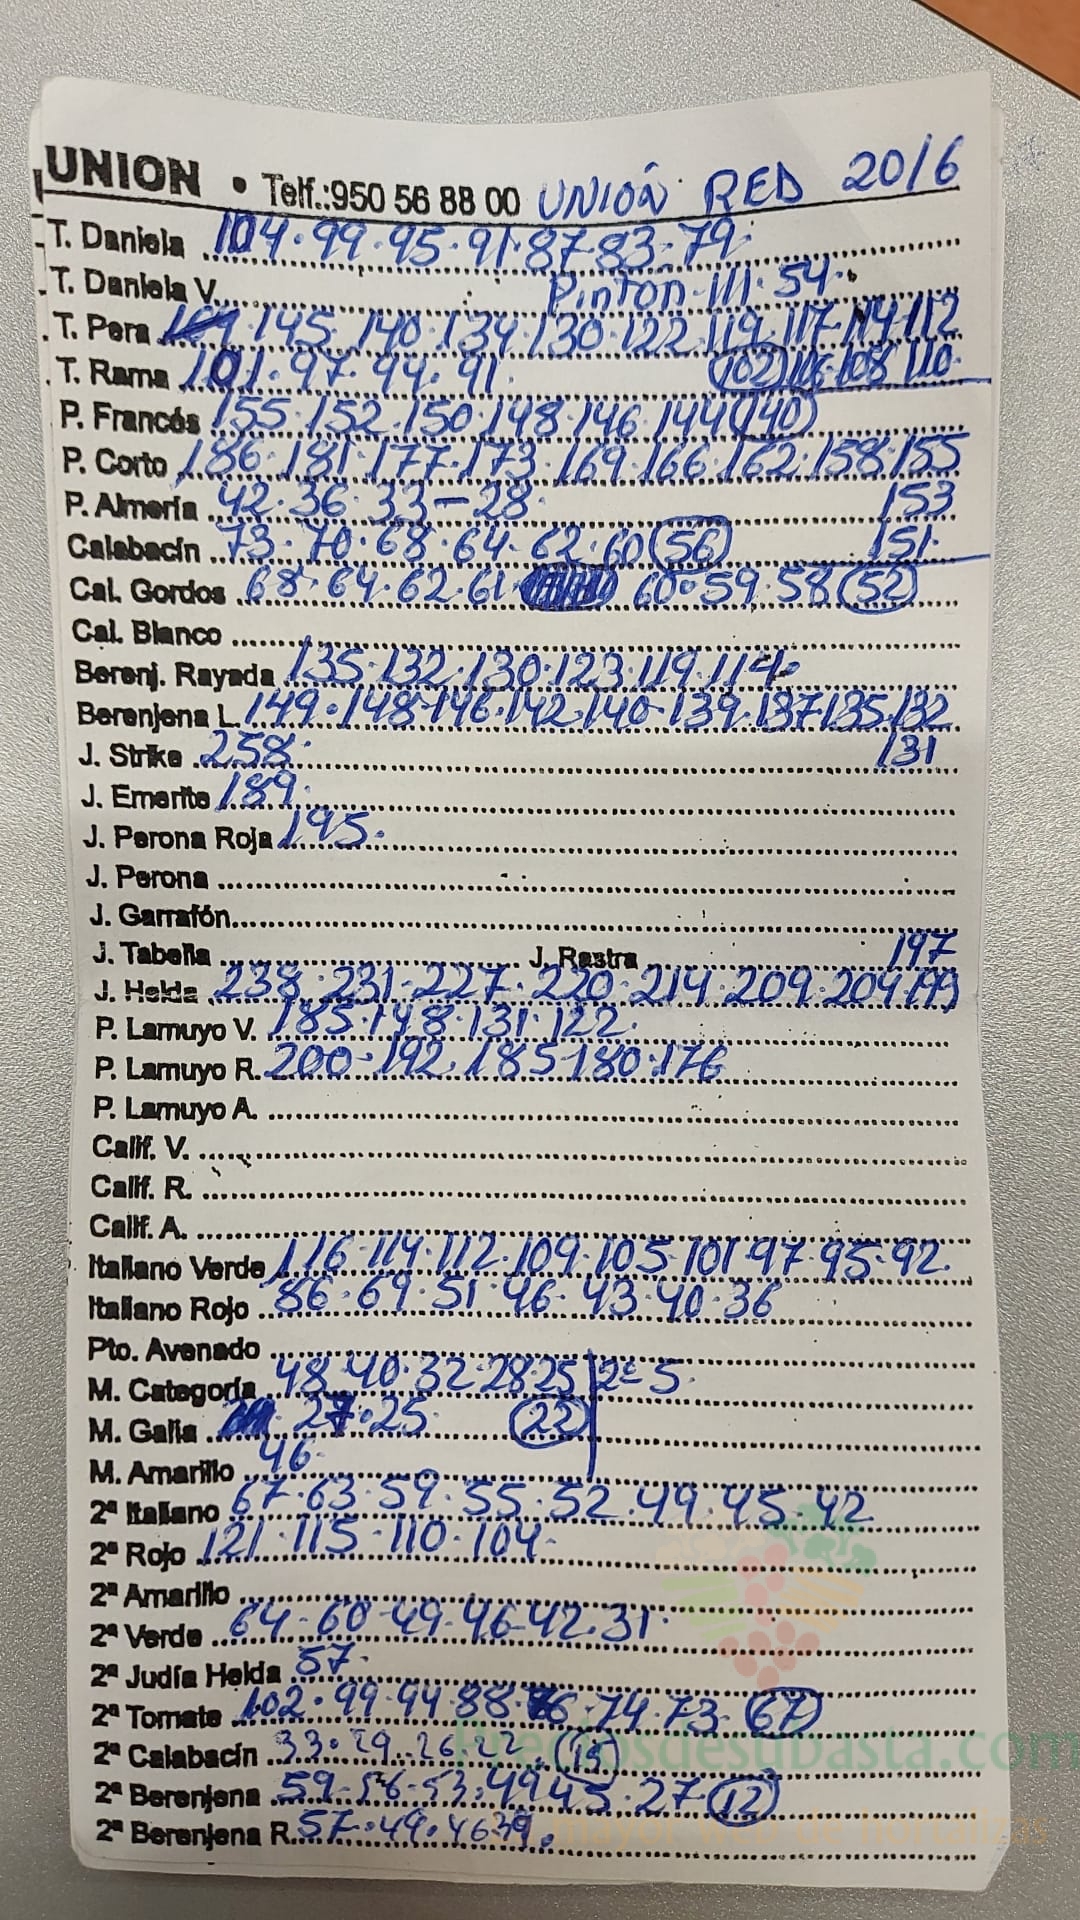 UNION • Telf.:950 56 88 00 UNIÓN RED 20/6
T. Daniela 104.99.95.91.87.83.79
T. Daniela V. Pinton 111.54
T. Pera 145.140.134.130.122.119.117.114.112
T. Rama 101.97.94.91 (102) 106.108 110
P. Francés 155.152.150.148.146.144 (140)
P. Corto 186.181.177.173.169.166.162.158.155
P. Almería 42.36.33-28 153
Calabacín 73.70.68.64.62.60 (56) 151
Cal. Gordos 68.64.62.61 60.59.58 (52)
Cal. Blanco
Berenj. Rayada 135.132.130.123.119.114
Berenjena L. 149.148.146.142.140.139.137.135.132
J. Strike 258 131
J. Emerite 189
J. Perona Roja 195
J. Perona
J. Garrafón
J. Tabella J. Rastra 197
J. Helda 238.231.227.220.214.209.204
P. Lamuyo V. 185.148.131.122
P. Lamuyo R. 200.192.185.180.176
P. Lamuyo A.
Calif. V.
Calif. R.
Calif. A.
Italiano Verde 116.114.112.109.105.101.97.95.92
Italiano Rojo 86.69.51.46.43.40.36
Pto. Avenado
M. Categoría 48.40.32.28.25 2ª 5
M. Galia 27.25 (22)
M. Amarillo 46
2ª Italiano 67.63.59.55.52.49.45.42
2ª Rojo 121.115.110.104
2ª Amarillo
2ª Verde 64.60.49.46.42.31
2ª Judía Helda 57
2ª Tomate 102.99.94.88.76.74.73 (67)
2ª Calabacín 33.29.26.22 (15)
2ª Berenjena 59.56.53.49.45.27 (12)
2ª Berenjena R. 57.49.46 39
Preciosdesubasta.com
mayor web de hortalizas